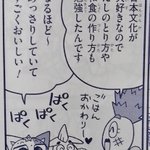 日本文化が
大好きなので
だしのとり方や
和食の作り方も
勉強したんです
なるほど~
あっさりしていて
すごくおいしい!
ごはん
おかわり
ぱく
ぱく